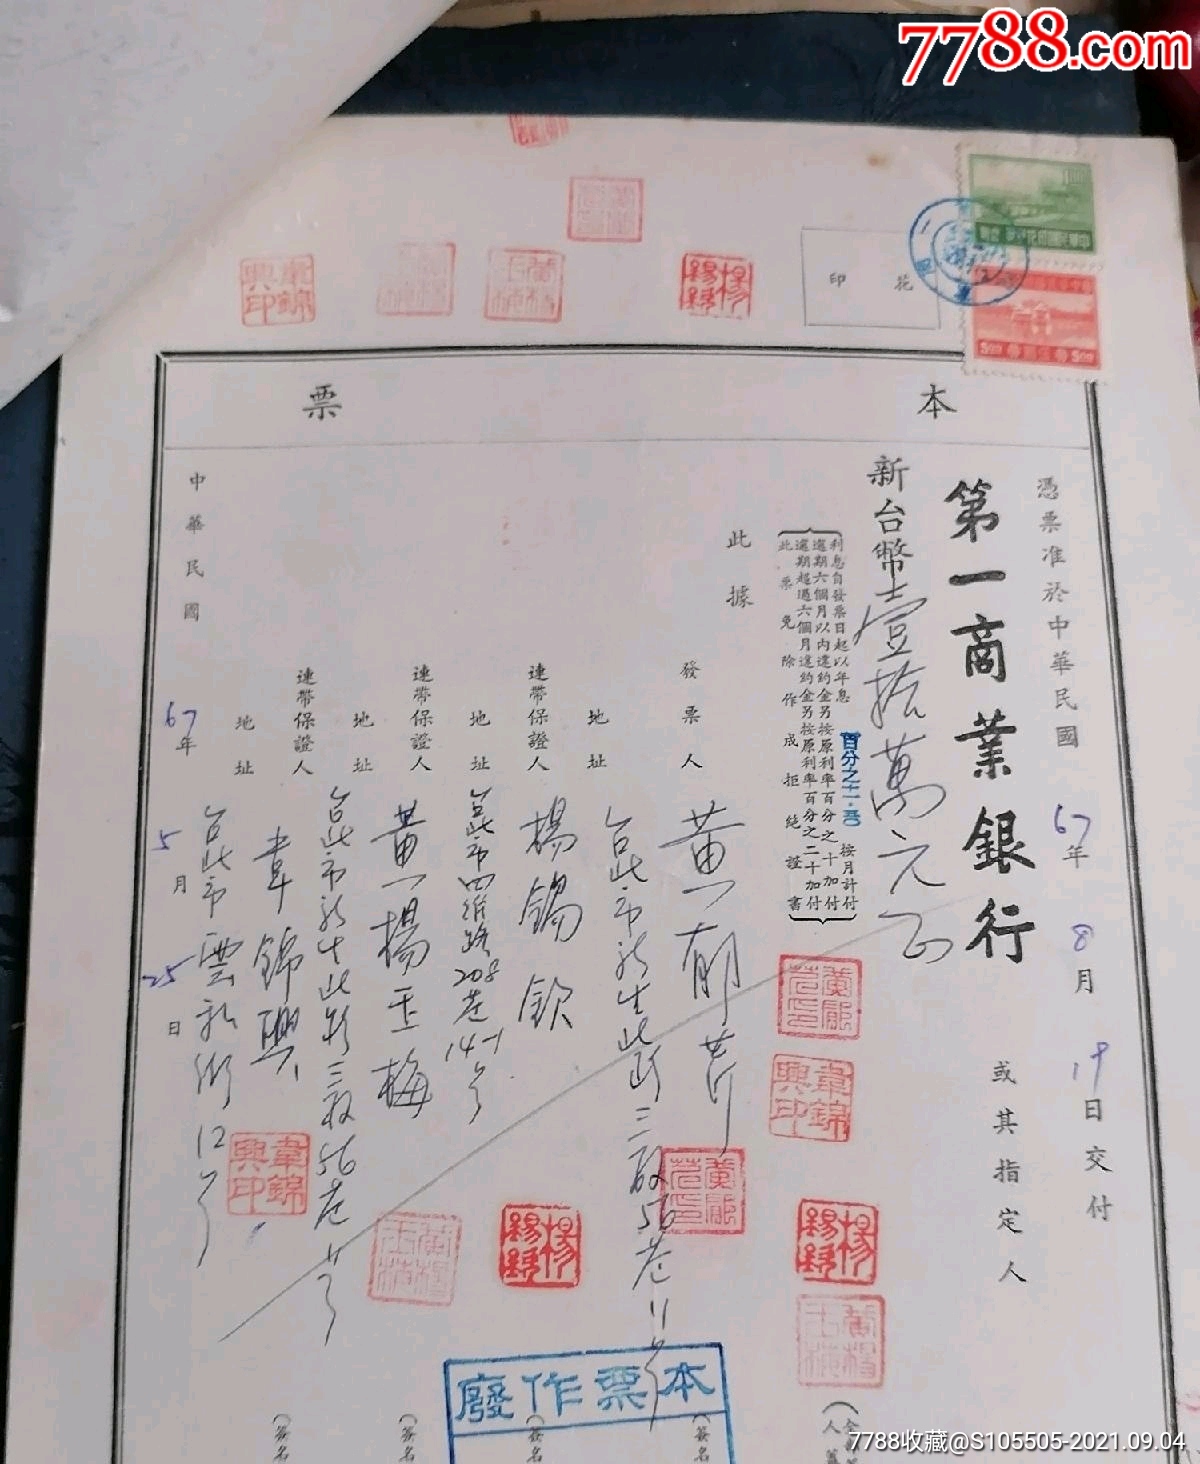 7788.com
印花
本票
憑票准於中華民國67年8月19日交付
第一商業銀行
或其指定人
新台幣壹拾萬元正
利息自發票日起以年息百分之十一·五按月計付
逾期六個月以內違約金另按原利率百分之十加付
逾期超過六個月違約金另按原利率百分之二十加付
此票免除作成拒絕證書
此據
發票人
地址
台北市新生北路三段56巷11號
連帶保證人楊錫欽
地址
台北市四維路208巷14-1號
連帶保證人黃楊玉梅
地址台北市新生北路三段56巷11號
連帶保證人韋錦興
地址
中華民國67年5月25日
韋錦興印
本票作廢
(簽名
(簽名
(簽名
(簽名
7788收藏@S105505-2021.09.04